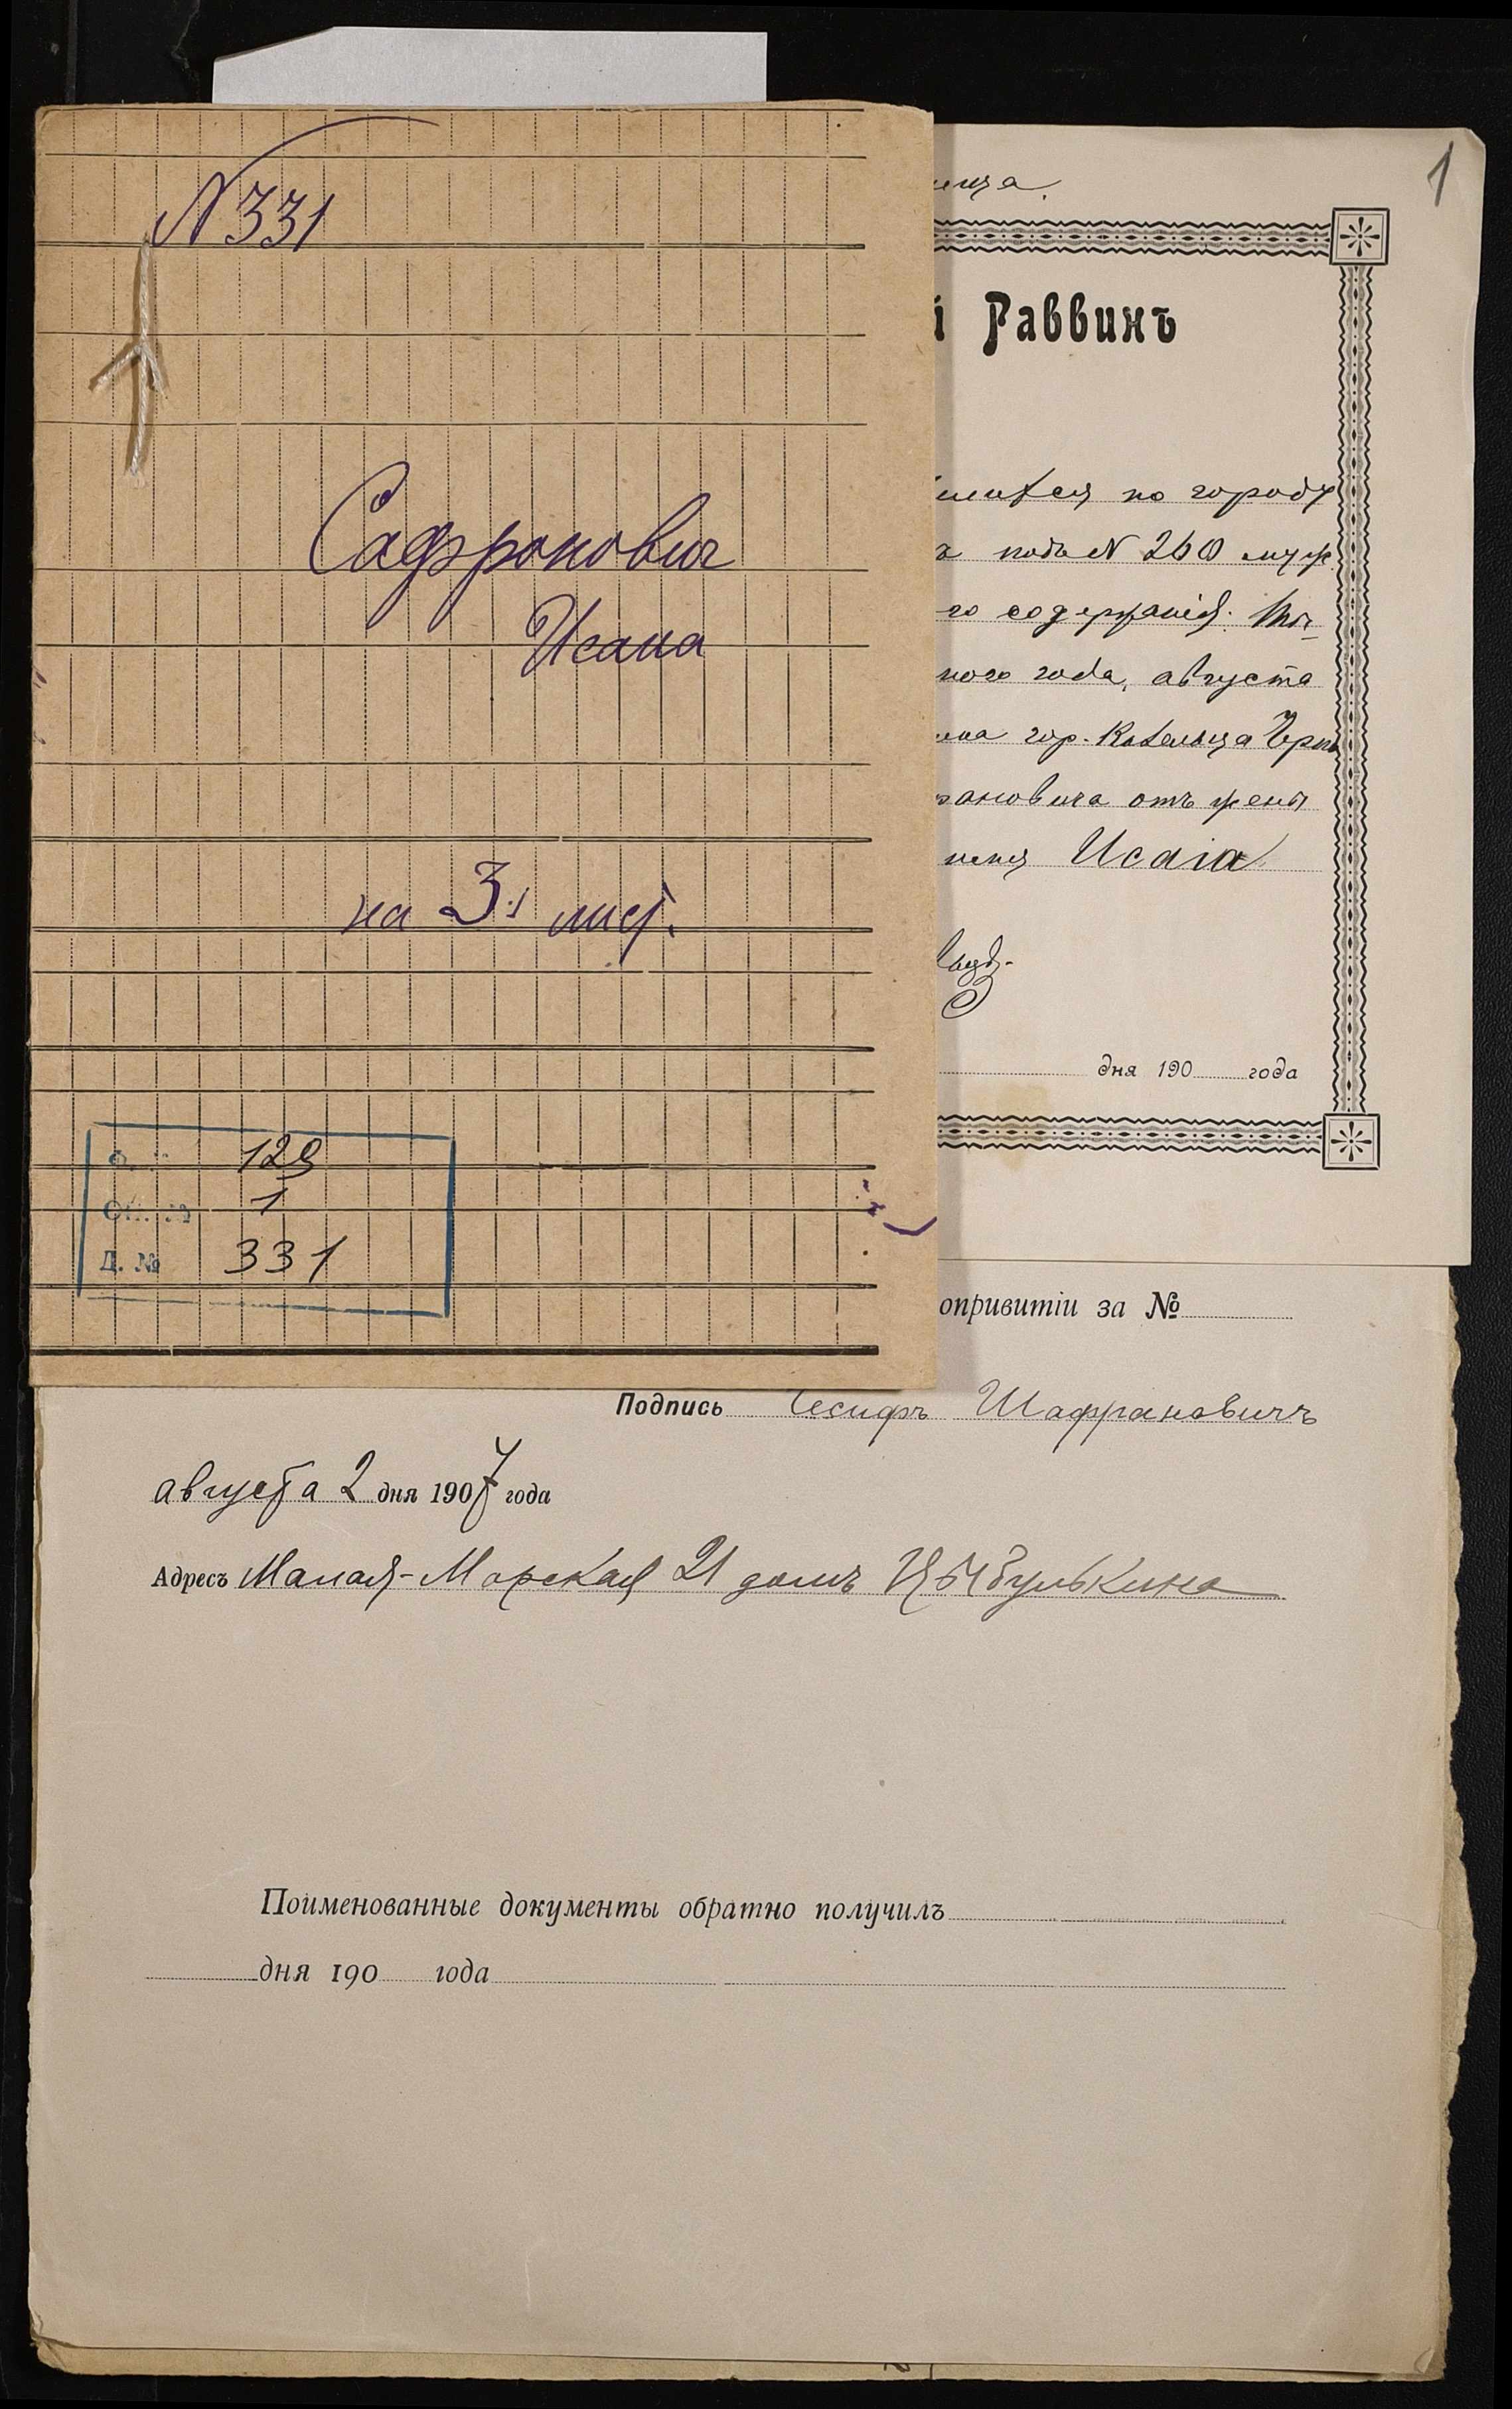 N 331
Сафронович
Исаиа
на 3.х лист.
Ф. № 129
Оп. № 1
Д. № 331
1
Раввинъ
по городу
подъ N 260 муж
содержанія:
года, августа
гор.
отъ жены
Исаія
дня 190 года
опривитіи за №
Подпись Іосифъ Шафрановичъ
августа 2 дня 1907 года
Адресъ Малая-Морская 21 домъ Цыбулькина
Поименованные документы обратно получилъ
дня 190 года